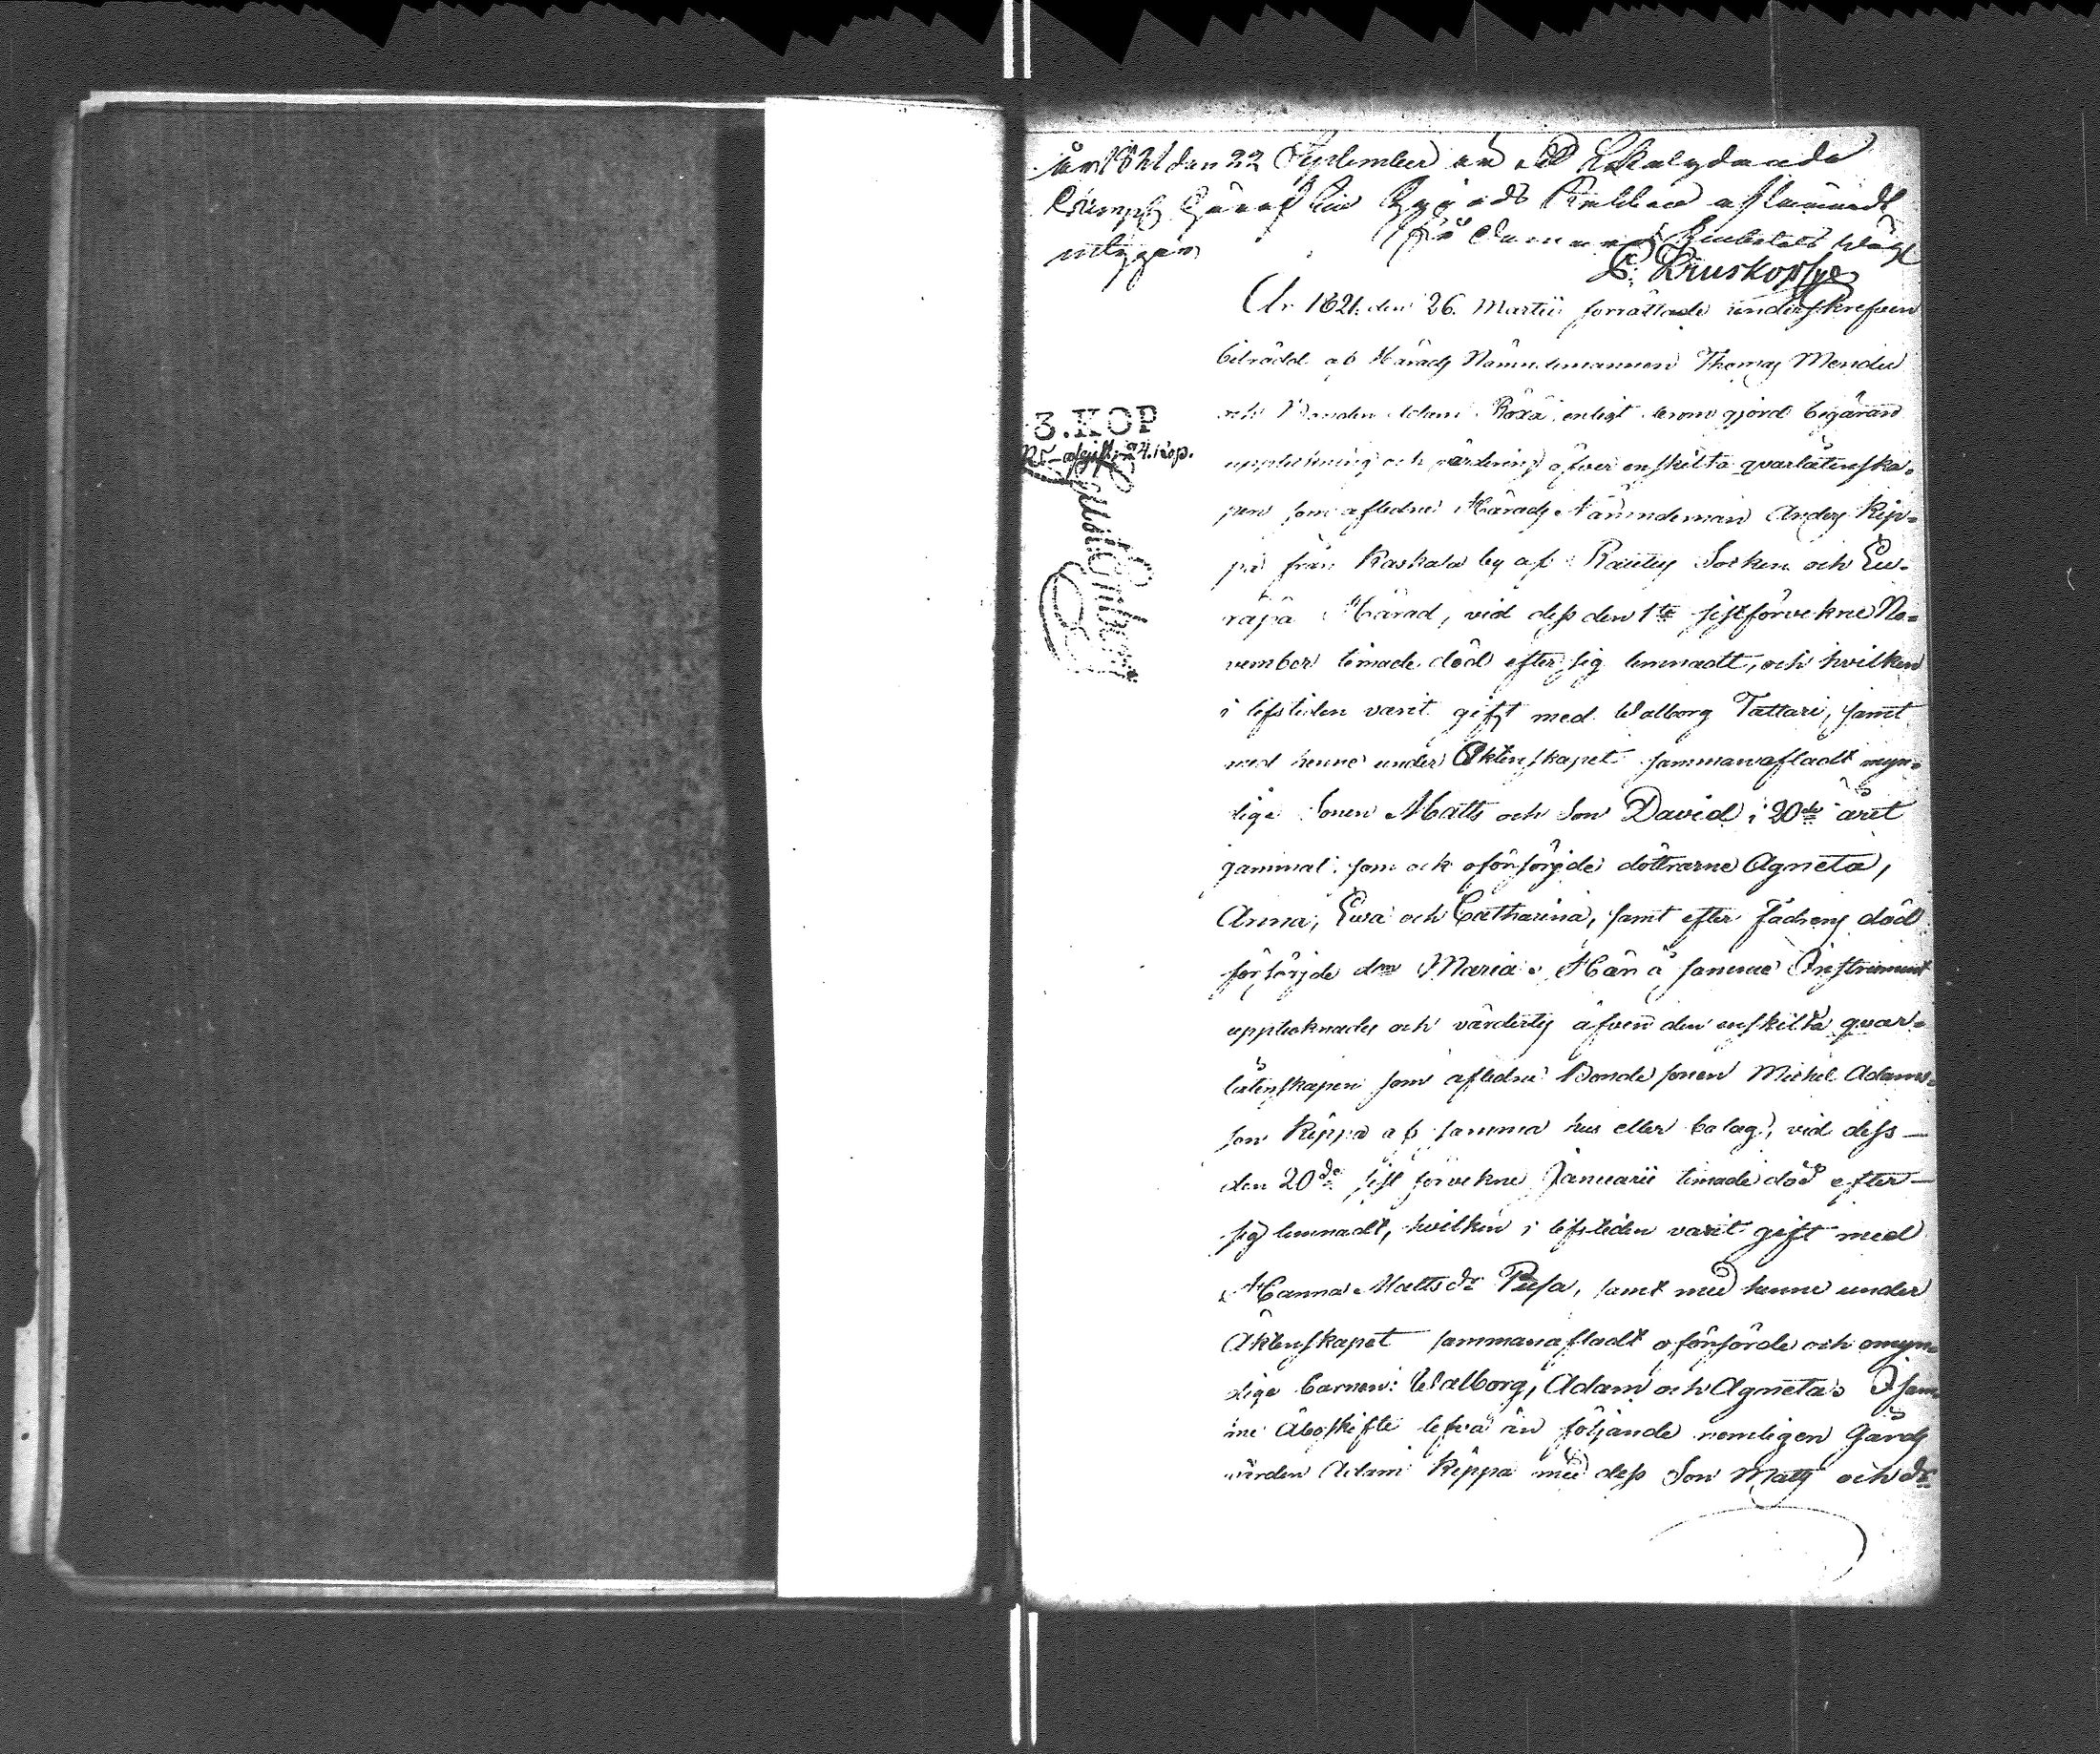 år 1821 den 22 September
intygar
C. Cruskopf
År 1821. den 26. Martii förrättade underskrefven
biträdd af Härads Nämndemannen Thomas
och Bonden Adam enligt derom gjord begäran
uppteckning och värdering öfver enskilta qvarlåtenska-
pen som afledne Härads Nämndeman Anders Rip-
pa från Kaskala by af Rautus Socken och Eu-
räpä Härad, vid dess den 1ste sistförvekne No-
vember timade död efter sig lemnadt, och hvilken
i lifstiden varit gift med Walborg Tattari, samt
med henne under Äktenskapet sammanafladt myn-
dige Sonen Matts och Son David i 20de året
gammal. som ock oförsörgde döttrarne Agneta,
Anna, Ewa och Catharina, samt efter Fadrens död
försörjde dn Maria. Här å samma Instrument
upptecknades och värderts äfven den enskilta qvar-
låtenskapen som aflidne Bonde sonen Michel Adams-
son Rippa af samma hus eller bolag, vid dess
den 20de sist förvekne Januarii timade död efter
sig lemnadt, hvilken i lifstiden varit gift med
Hanna Matts dr Pusa, samt med henne under
Äktenskapet sammanafladt oförsörde och omyn-
dige barnen: Walborg, Adam och Agneta. I sam-
me Åboskifte lefva än följande nemligen Gårds
värden Adam Rippa med dess Son Matts och dr
3. KOP